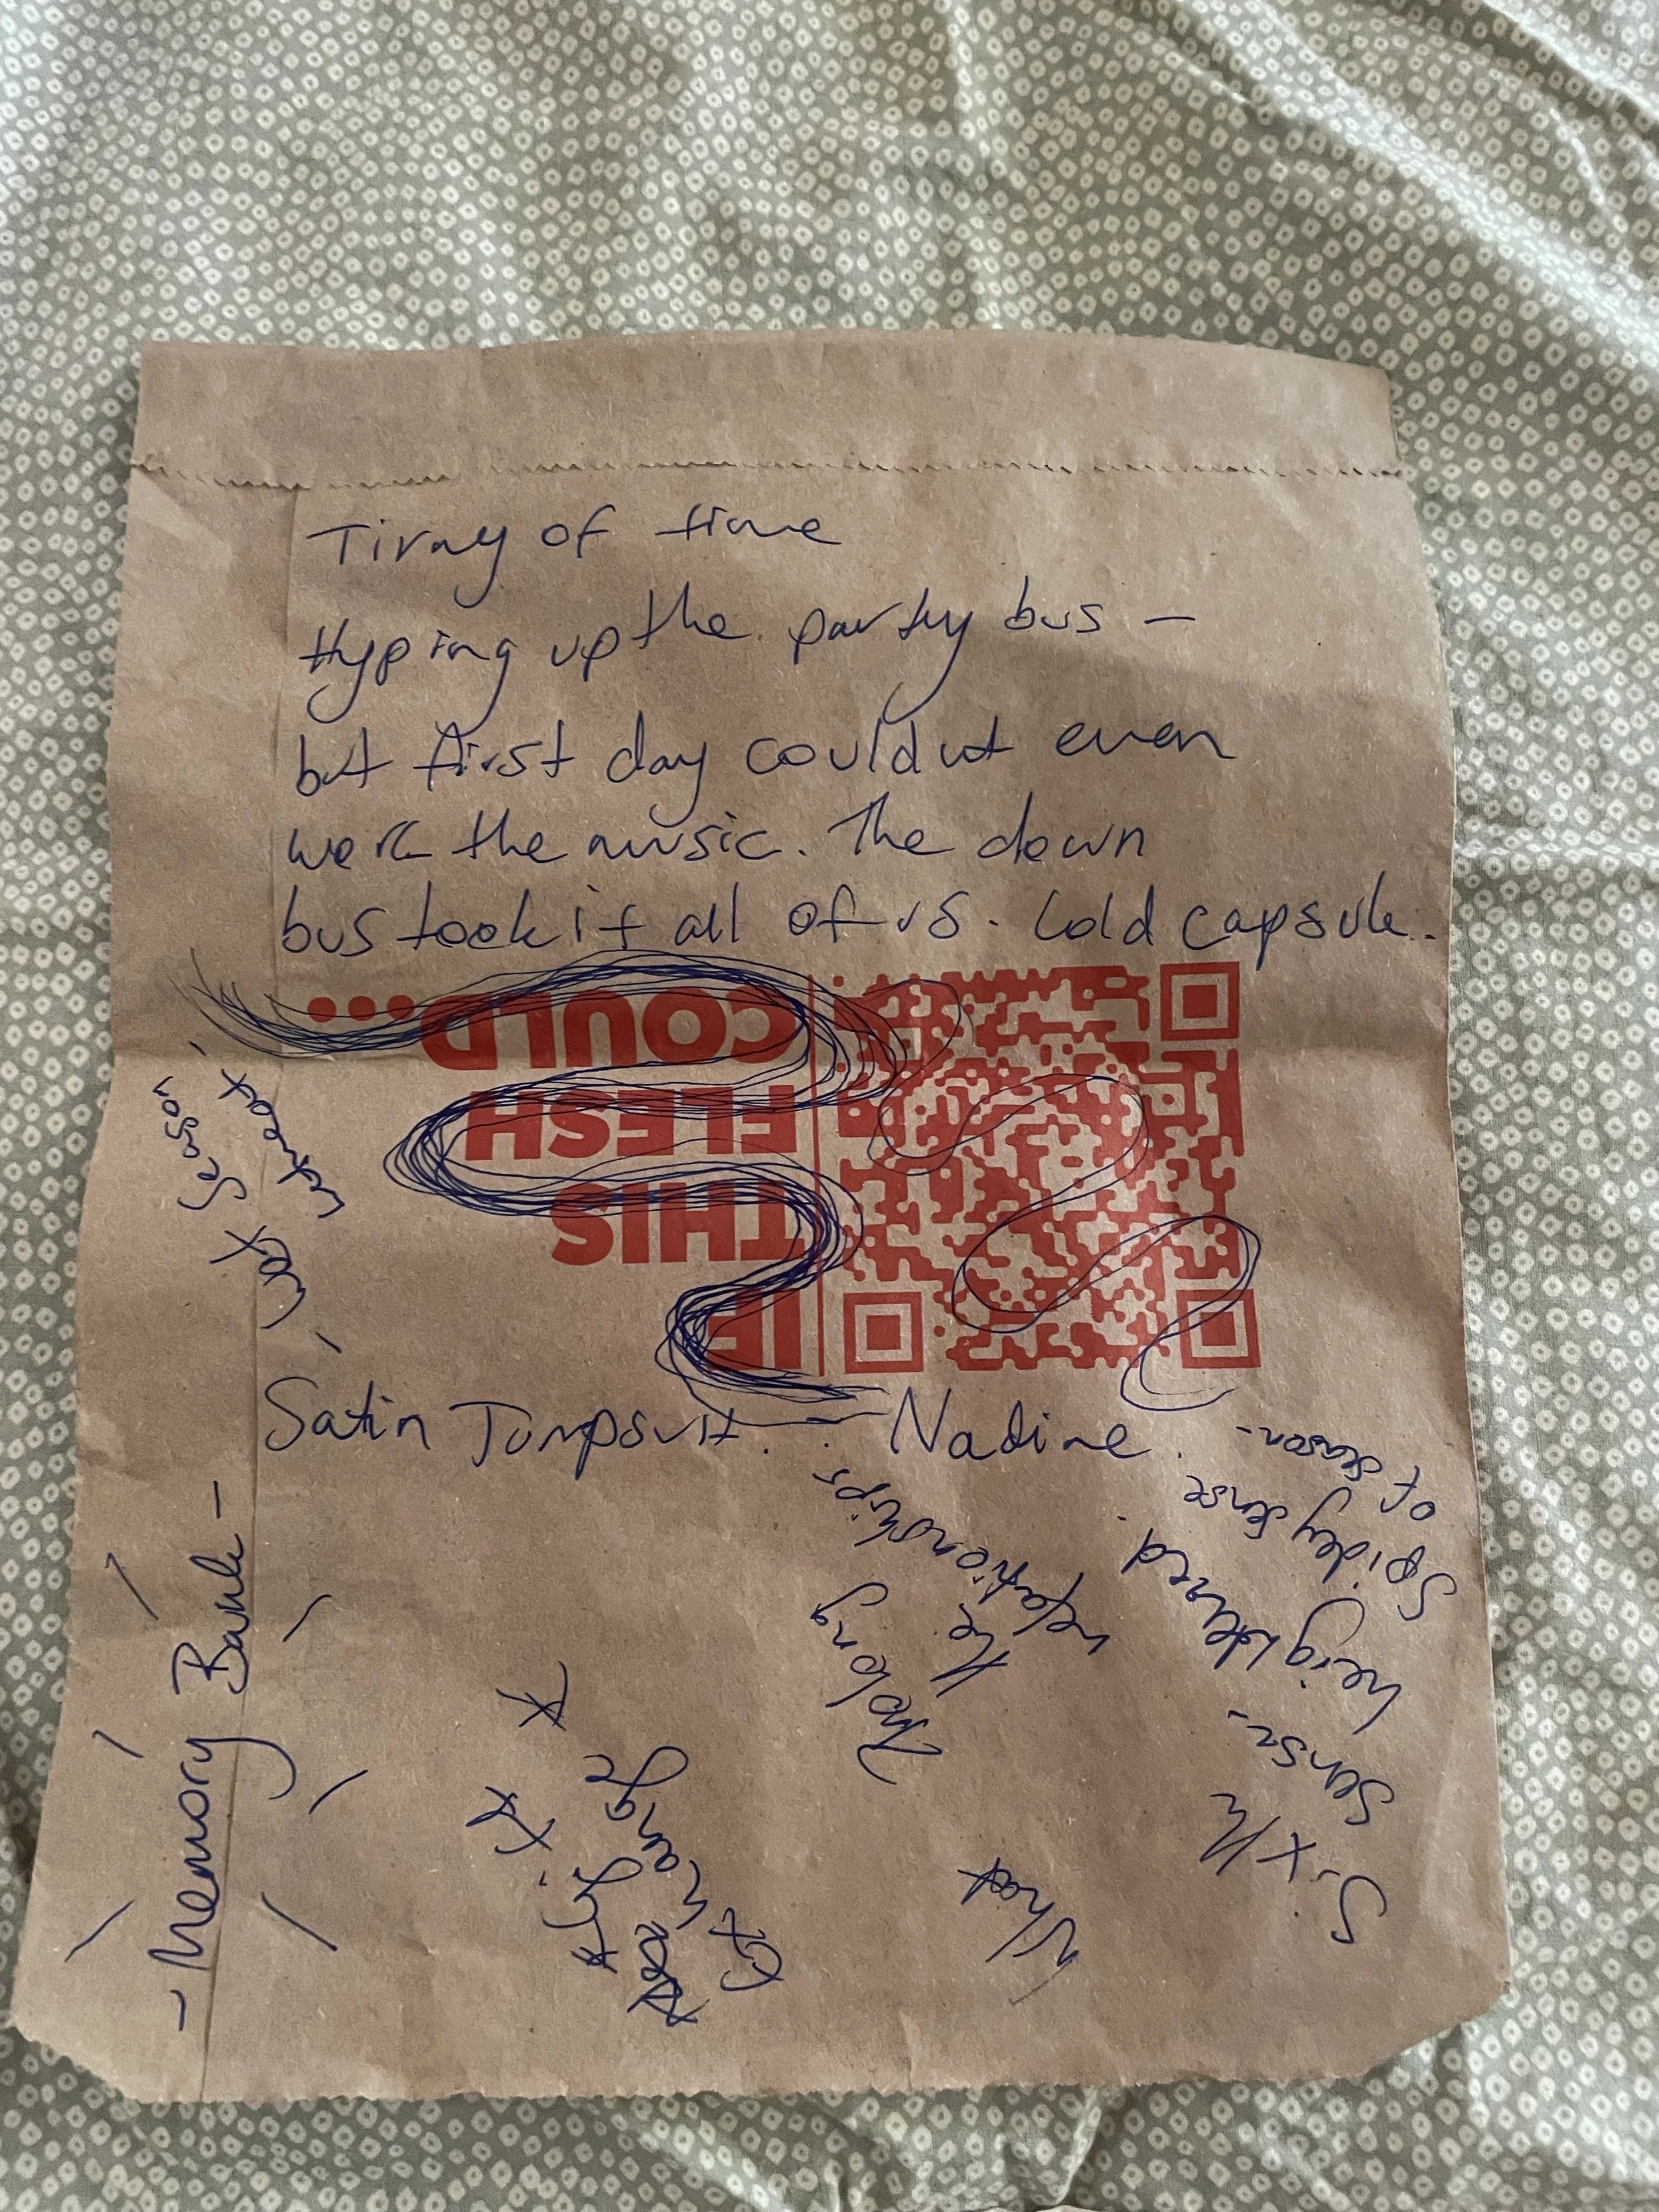 Tirny of time
Hyping up the party bus –
but first day couldnt even
work the music. The down
bus took it all of us. Cold capsule.
IF
THIS
FLESH
COULD...
Wet Season.
Wet heat
Satin Jumpsuit. Nadine.
– Memory Bank –
Making
the
relationships
What
Sixth
Sense.
heightened.
Spidey sense
of season.